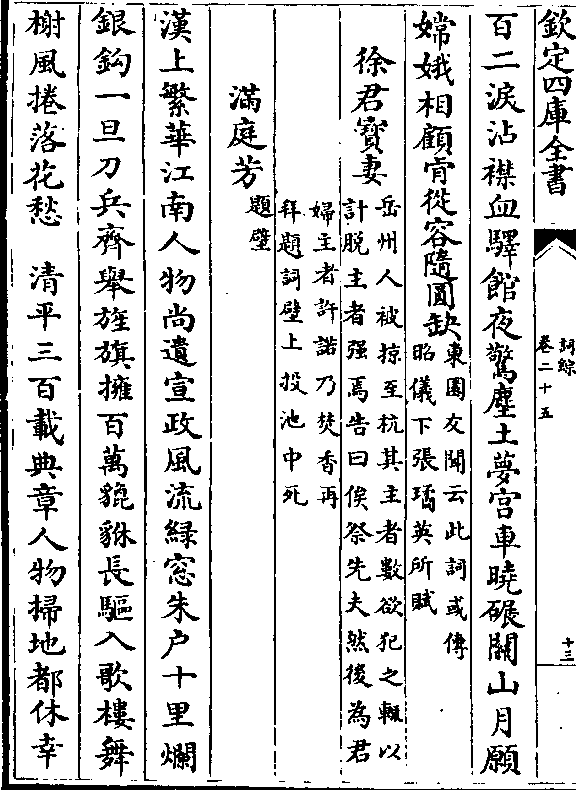 欽定四庫全書
詞綜
卷二十五
十三
百二淚沾襟血驛館夜驚塵土夢宫車曉碾關山月願
嫦娥相顧肯從容隨圓缺
東園友聞云此詞或傳
昭儀下張璚英所賦
徐君寶妻
岳州人被掠至杭其主者數欲犯之輒以
計脱主者强焉告曰俟祭先夫然後為君
婦主者許諾乃焚香再
拜題詞壁上投池中死
滿庭芳
題壁
漢上繁華江南人物尚遺宣政風流緑窓朱户十里爛
銀鈎一旦刀兵齊舉旌旗擁百萬貔貅長驅入歌樓舞
榭風捲落花愁　清平三百載典章人物掃地都休幸